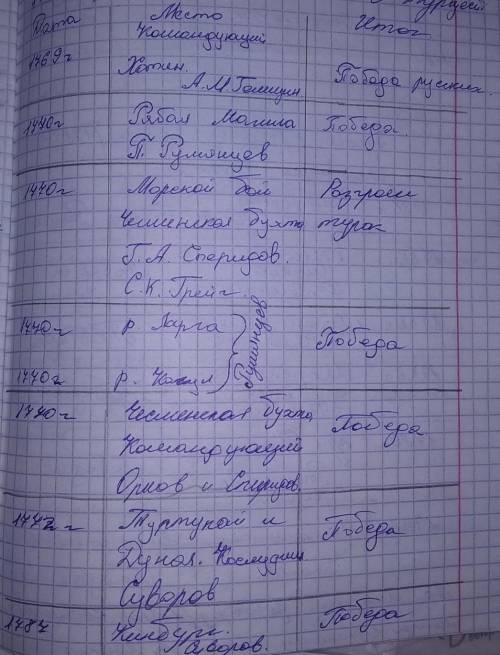 Турцией
Дата Место Итог
Командующий
1769г Хотин.
А.М Голицын Победа русских.
1770г Рябая Могила Победа.
П. Румянцев
1770г Морской бой Разгром
Чесменская бухта турок
Г.А. Спиридов.
С.К. Грейг.
1770г р. Ларга
Румянцев Победа
1770г р. Кагул
1770г Чесменская бухта Победа
Командующий
Орлов и Спиридов.
1772г Туртукой и Победа
Дуная.
Суворов
1787 Кинбурн. Победа
Суворов.